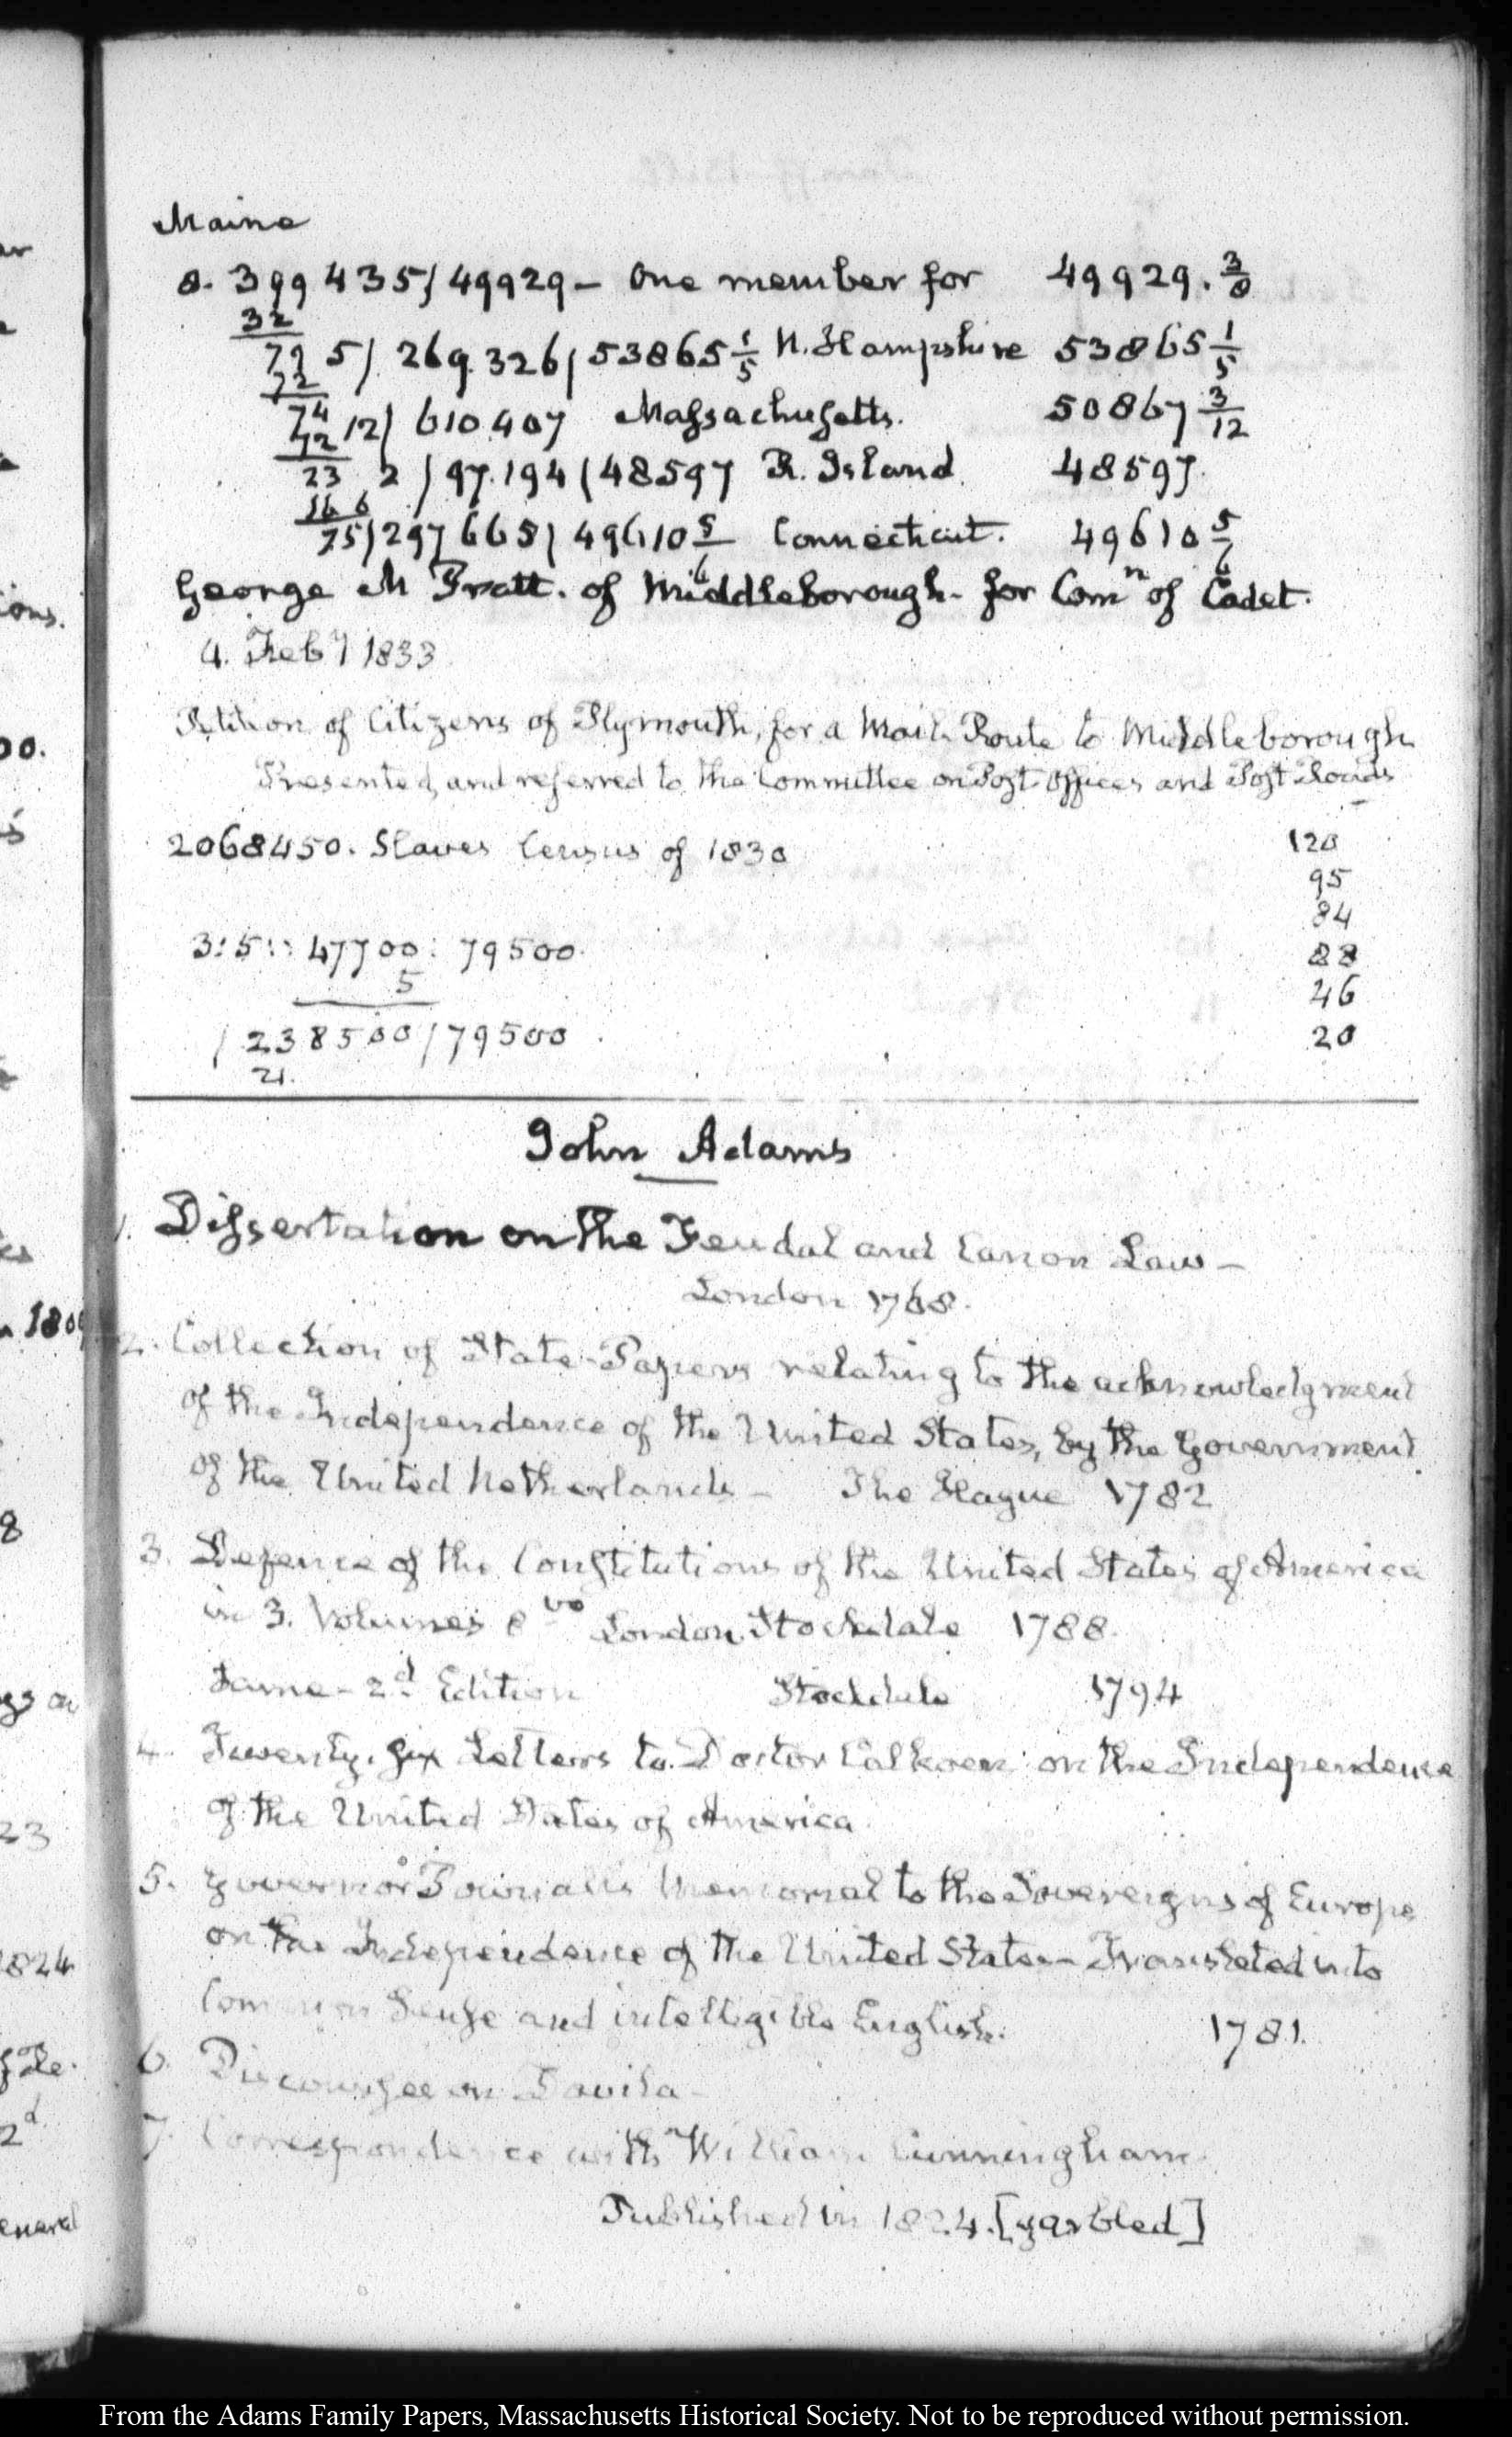 Maine
8. 399 435/ 49929 – One member for 49929. 3/8
32
79 5/. 269.326/ 53865 1/5 N. Hampshire 53865 1/5
72
74 12/ 610.407 Massachusetts. 50867 3/12
72
23 2 / 97.194 (48597 R. Island. 48597.
16 6
75/ 297 665/ 49610 5/6 Connecticut. 49610 5/6
George M Pratt. of Middleborough – for Comn of Cadet.
4. Feby 1833
Petition of Citizens of Plymouth, for a Mail Route to Middleborough
Presented, and referred to the Committee on Post Offices and Post Roads
2068450. Slaves Census of 1830 120
95
84
3:5:: 47700: 79500. 88
5 46
/ 238500 / 79500 20
21.
John Adams
1. Dissertation on the Feudal and Canon Law –
London 1768.
2. Collection of State-Papers relating to the acknowledgment
of the Independence of the United States, by the Government
of the United Netherlands – The Hague 1782
3. Defence of the Constitutions of the United States of America
in 3. Volumes 8vo London Stockdale 1788.
Same – 2d Edition Stockdale 1794
4. Twenty-six Letters to Doctor Calkoen on the Independence
of the United States of America.
5. Governor Pownall's Memorial to the Sovereigns of Europe
on the Independence of the United States – Translated into
Common Sense and intelligible English. 1781.
6. Discourses on Davila –
7. Correspondence with William Cunningham
Published in 1824. [garbled]
ions.
00.
180
8
gs on
23
1824
2d
eneral
From the Adams Family Papers, Massachusetts Historical Society. Not to be reproduced without permission.